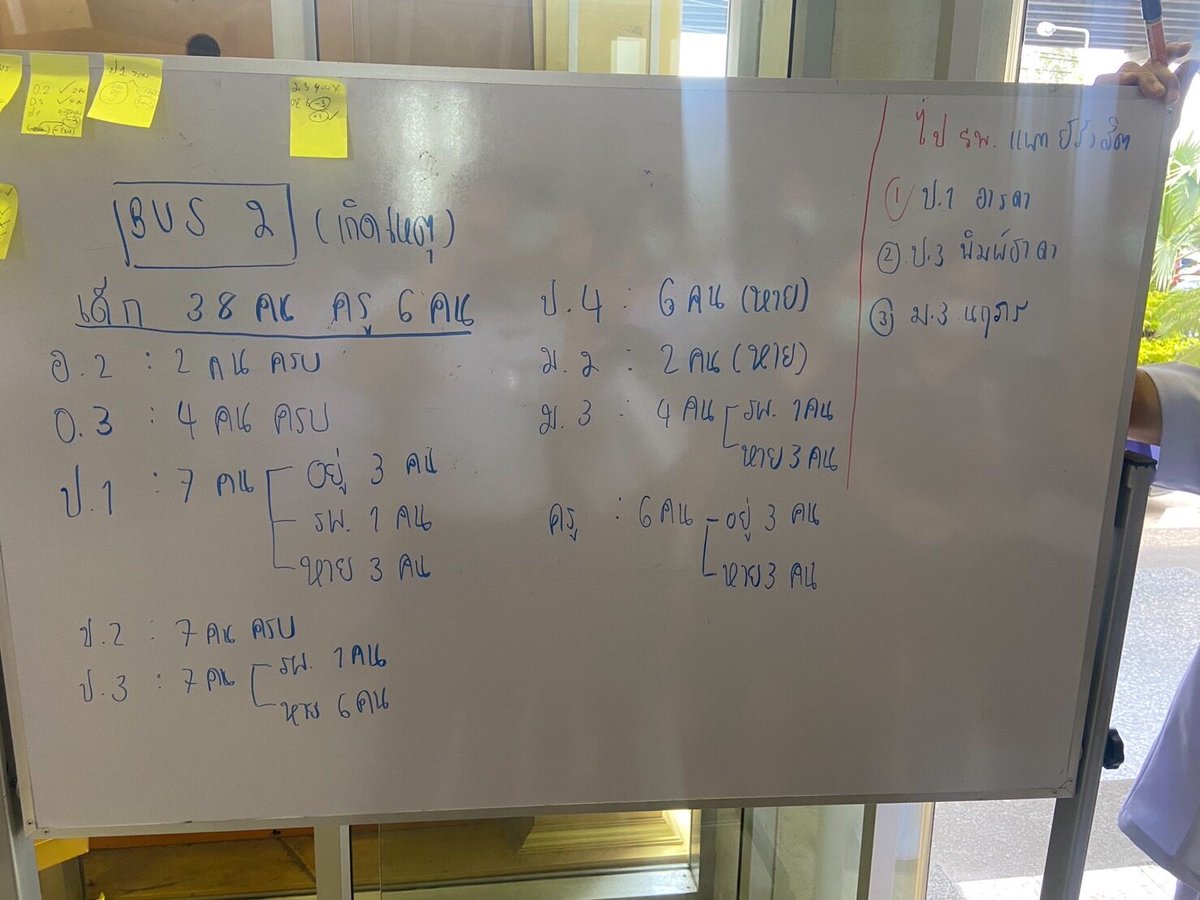 BUS 2 (เกิดเหตุ)
เด็ก 38 คน ครู 6 คน
อ.2 : 2 คน ครบ
อ.3 : 4 คน ครบ
ป.1 : 7 คน
อยู่ 3 คน
รพ. 1 คน
หาย 3 คน
ป.2 : 7 คน ครบ
ป.3 : 7 คน
รพ. 1 คน
หาย 6 คน
ป.4 : 6 คน (หาย)
ม.2 : 2 คน (หาย)
ม.3 : 4 คน
รพ. 1 คน
หาย 3 คน
ครู : 6 คน
อยู่ 3 คน
หาย 3 คน
ไป รพ. แพทย์รังสิต
① ป.1 อารดา
② ป.3 พิมพ์ธาดา
③ ม.3